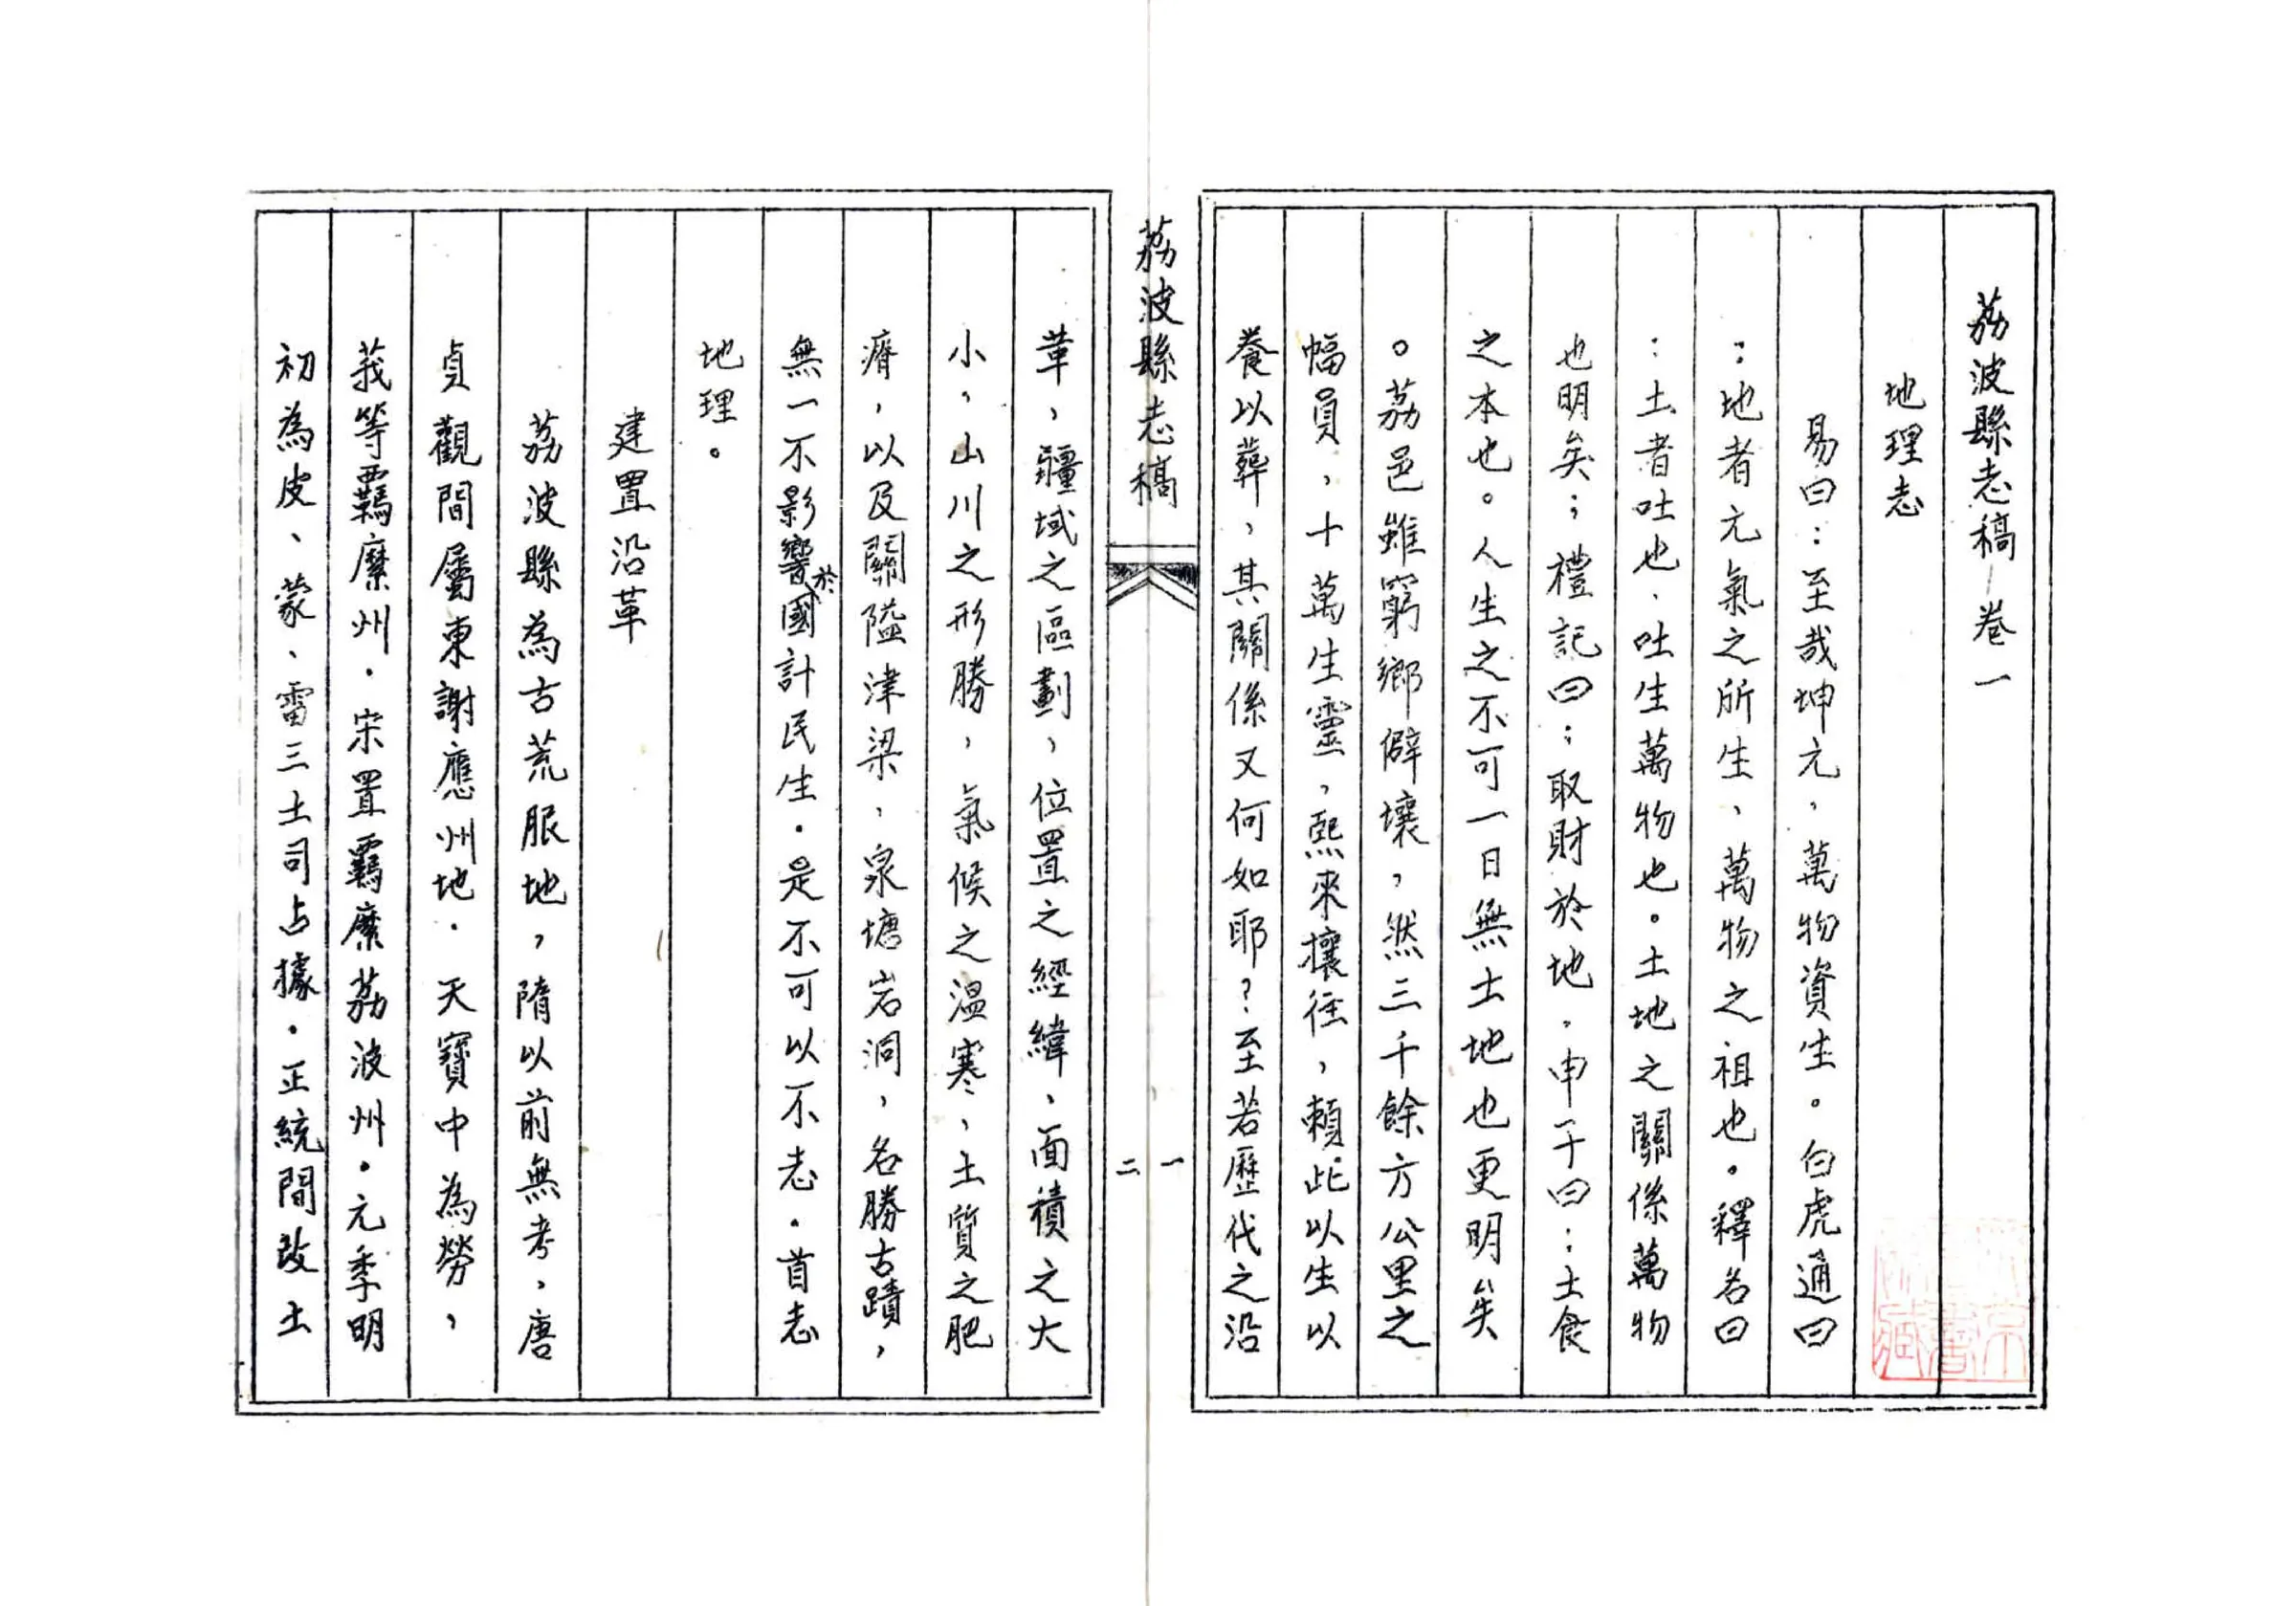 荔波縣志稿 卷一
地理志
易曰：至哉坤元，萬物資生。白虎通曰
：地者元氣之所生，萬物之祖也。釋名曰
：土者吐也、吐生萬物也。土地之關係萬物
也明矣；禮記曰：取財於地，申子曰：土食
之本也。人生之不可一日無土地也更明矣
。荔邑雖窮鄉僻壤，然三千餘方公里之
幅員，十萬生靈，熙來攘往，賴此以生以
養以葬，其關係又何如耶？至若歷代之沿
荔波縣志稿
一
二
革，疆域之區劃，位置之經緯，面積之大
小，山川之形勝，氣候之溫寒，土質之肥
瘠，以及關隘津梁，泉塘岩洞，名勝古蹟，
無一不影響於國計民生．是不可以不志．首志
地理。
建置沿革
荔波縣為古荒服地，隋以前無考，唐
貞觀間屬東謝應州地．天寶中為勞，
莪等羈縻州．宋置羈縻荔波州。元季明
初為皮、蒙、雷三土司占據．正統間改土